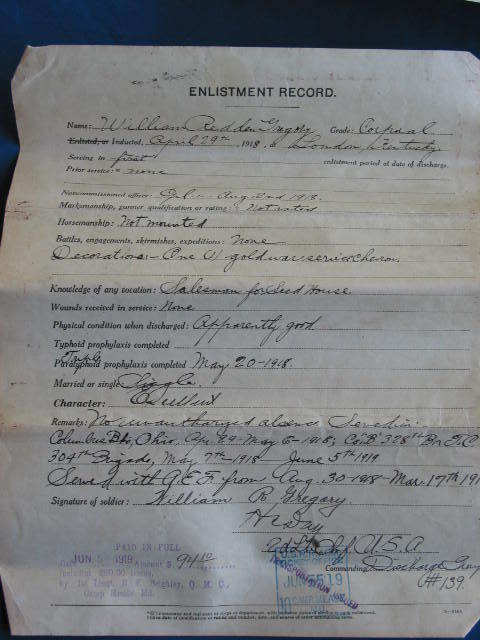 ENLISTMENT RECORD.
Name: William Redden Gregory Grade: Corporal
Enlisted, or Inducted, April 29th, 1918, at London, Kentucky
Serving in first enlistment period at date of discharge.
Prior service: none
Noncommissioned officer: Cpl Aug 2nd 1918.
Marksmanship, gunner qualification or rating: Not rated
Horsemanship: Not mounted
Battles, engagements, skirmishes, expeditions: none
Decorations - One V gold war service chevron.
Knowledge of any vocation: Salesman for Seed House.
Wounds received in service: None
Physical condition when discharged: Apparently good
Typhoid prophylaxis completed
Paratyphoid prophylaxis completed May 20-1918.
Married or single: Single
Character: Excellent
Remarks: No unauthorized absence. Served in:
Columbus Bks, Ohio. Apr. 29-May 6-1918; Co. "B" 328th Bn. T.C.
304th Brigade, May 7th-1918 June 5th 1919
Served with A.E.F. from Aug. 30-1918-Mar. 17th 191
Signature of soldier: William R. Gregory.
PAID IN FULL
Date JUN 5 1919, Amount $ 94.10
including $60.00 bonus,
by 1st Lieut. Q. M. C.,
Camp Meade Md.
2d Lt. Inf. U.S.A
Commanding Discharge Group
#139.
TRANSPORTATION ISSUED
JUN 5 19